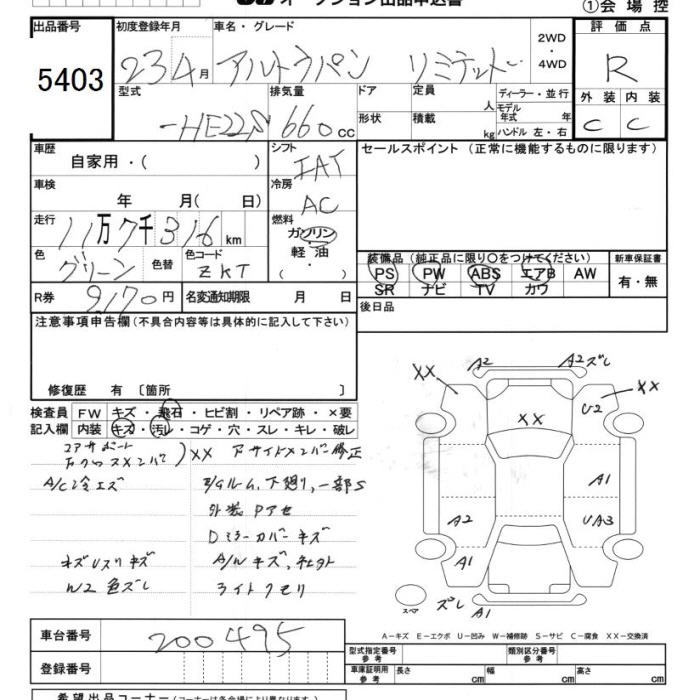 オークション出品申込書
①会場控
出品番号 5403
初度登録年月 23 4月
車名・グレード アルトラパン リミテッド
2WD・4WD
評価点 R
型式 -HE22S
排気量 660cc
ドア 形状
定員 人 積載 kg
ディーラー・並行
モデル年式 年
ハンドル 左・右
外装 C 内装 C
車歴 自家用・( )
シフト IAT
セールスポイント (正常に機能するものに限ります)
車検 年 月(日)
冷房 AC
走行 11万7千316km
燃料 ガソリン・軽油・( )
色 グリーン 色替 色コード ZKT
装備品 (純正品に限り○をつけてください)
新車保証書
PS PW ABS エアB AW
有・無
SR ナビ TV カワ
R券 9,170円 名変通知期限 月 日
後日品
注意事項申告欄(不具合内容等は具体的に記入して下さい)
修復歴 有 [箇所 ]
検査員記入欄
FW キズ・飛石・ヒビ割・リペア跡・×要
内装 キズ・汚レ・コゲ・穴・スレ・キレ・破レ
コアサポート
)XX
サイドメンバー修正
A/Cエズ
下廻り、一部S
Dミラーカバーキズ
キズ
A/Wキズ、
W2 色ズレ
ライトクモリ
XX
A2
A2ズレ
XX
XX
U2
A1
A2
UA3
A1
A1
スペア
ズレ
A1
A-キズ E-エクボ U-凹み W-補修跡 S-サビ C-腐食 XX-交換済
車台番号 200495
型式指定番号 参考
類別区分番号 参考
登録番号
車庫証明用 参考 長さ cm 幅 cm 高さ cm
希望出品コーナー(コーナーは各会場により異なります)